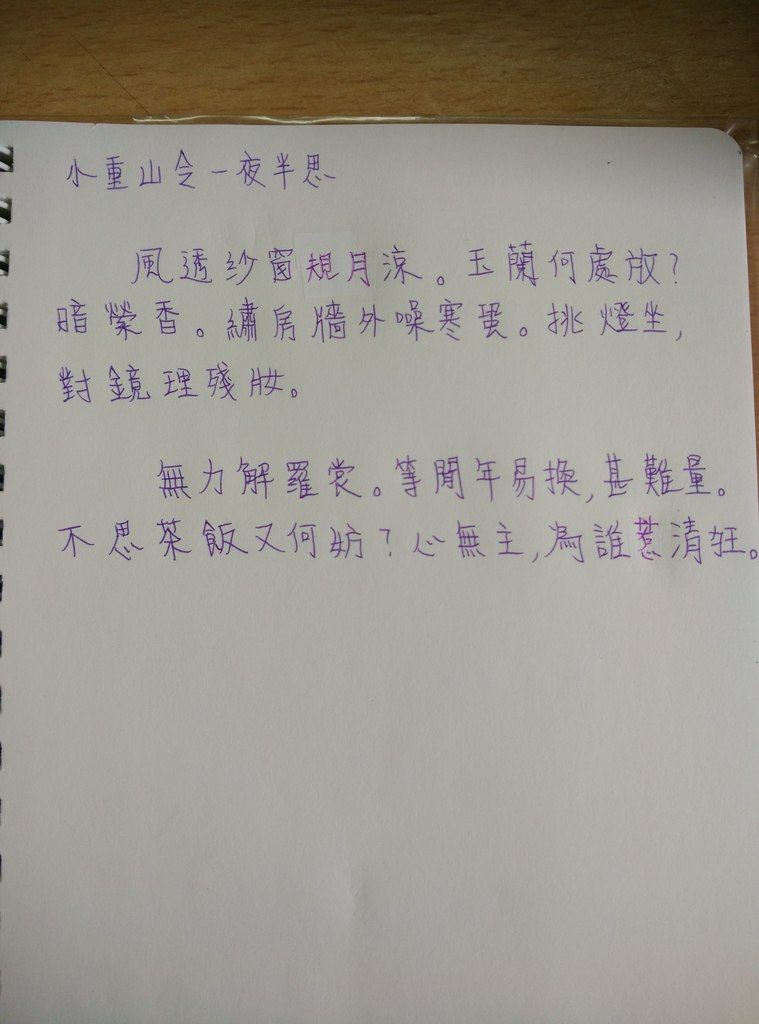 小重山令一夜半思
風透紗窗規月涼。玉蘭何處放?
暗縈香。繡房牆外噪寒蛩。挑燈坐,
對鏡理殘妝。
無力解羅裳。等閒年易換,甚難量。
不思茶飯又何妨?心無主,為誰惹清狂。